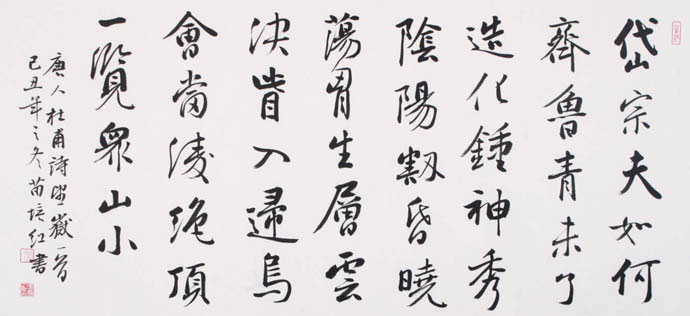 岱宗夫如何
齊魯青未了
造化鍾神秀
陰陽割昏曉
蕩胷生層雲
決眥入歸鳥
會當凌絶頂
一覽眾山小
唐人杜甫詩望嶽一首
己丑年之冬苗培红書